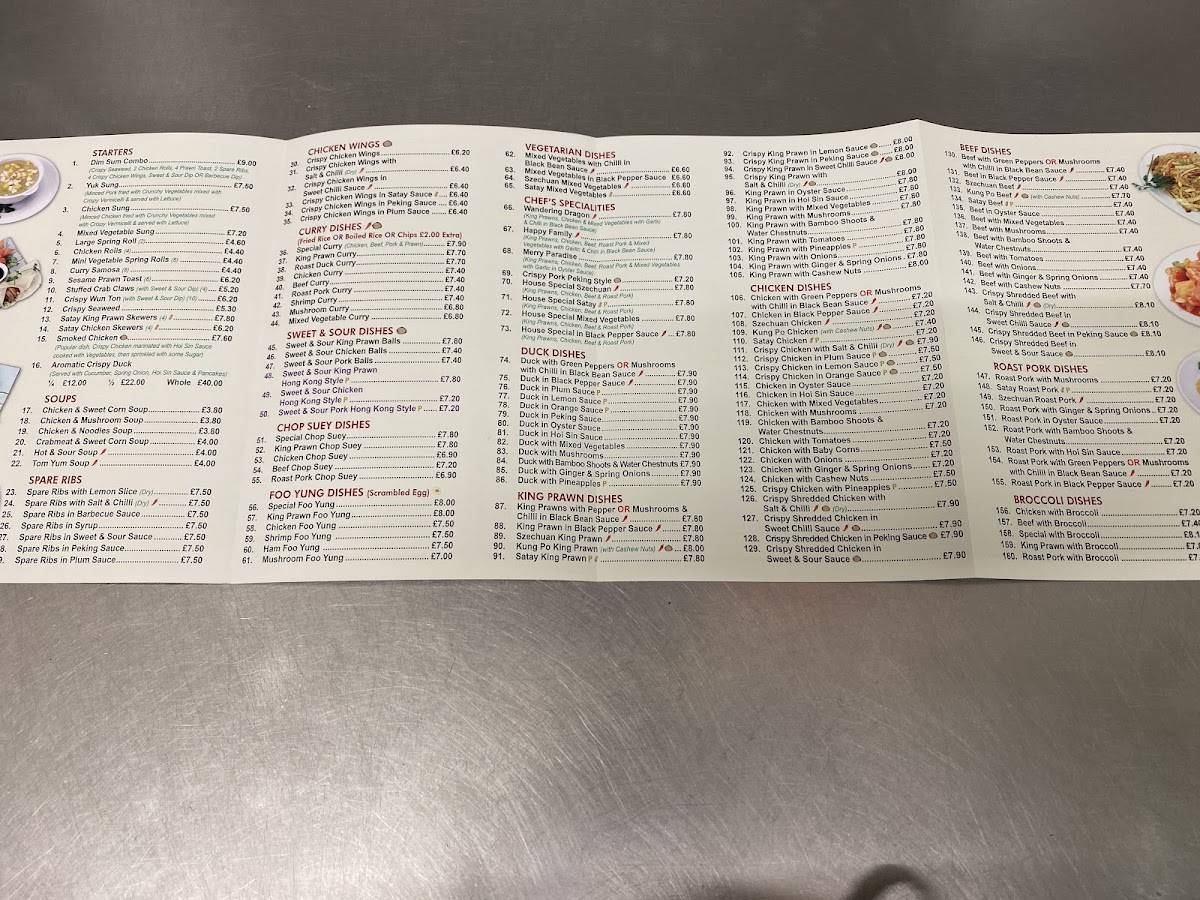 STARTERS
1. Dim Sum Combo £9.00
(Crispy Seaweed, 2 Chicken Rolls, 4 Prawn Toast, 2 Spare Ribs,
4 Crispy Chicken Wings, Sweet & Sour Dip OR Barbecue Dip)
2. Yuk Sung £7.50
(Minced Pork fried with Crunchy Vegetables mixed with
Crispy Vermicelli & served with Lettuce)
3. Chicken Sung £7.50
(Minced Chicken fried with Crunchy Vegetables mixed
with Crispy Vermicelli & served with Lettuce)
4. Mixed Vegetable Sung £7.20
5. Large Spring Roll (2) £4.60
6. Chicken Rolls (4) £4.40
7. Mini Vegetable Spring Rolls (8) £4.40
8. Curry Samosa (8) £4.40
9. Sesame Prawn Toast (6) £6.20
10. Stuffed Crab Claws (with Sweet & Sour Dip) (4) £5.20
11. Crispy Wun Ton (with Sweet & Sour Dip) (10) £6.20
12. Crispy Seaweed £5.30
13. Satay King Prawn Skewers (4) £7.80
14. Satay Chicken Skewers (4) £6.20
15. Smoked Chicken £7.60
(Popular dish, Crispy Chicken marinated with Hoi Sin Sauce
cooked with Vegetables, then sprinkled with some Sugar)
16. Aromatic Crispy Duck
(Served with Cucumber, Spring Onion, Hoi Sin Sauce & Pancakes)
¼ £12.00 ½ £22.00 Whole £40.00
SOUPS
17. Chicken & Sweet Corn Soup £3.80
18. Chicken & Mushroom Soup £3.80
19. Chicken & Noodles Soup £3.80
20. Crabmeat & Sweet Corn Soup £4.00
21. Hot & Sour Soup £4.00
22. Tom Yum Soup £4.00
SPARE RIBS
23. Spare Ribs with Lemon Slice (Dry) £7.50
24. Spare Ribs with Salt & Chilli (Dry) £7.50
25. Spare Ribs in Barbecue Sauce £7.50
26. Spare Ribs in Syrup £7.50
27. Spare Ribs in Sweet & Sour Sauce £7.50
8. Spare Ribs in Peking Sauce £7.50
9. Spare Ribs in Plum Sauce £7.50
CHICKEN WINGS
30. Crispy Chicken Wings £6.20
31. Crispy Chicken Wings with
Salt & Chilli (Dry) £6.40
32. Crispy Chicken Wings in
Sweet Chilli Sauce £6.40
33. Crispy Chicken Wings In Satay Sauce £6.40
34. Crispy Chicken Wings in Peking Sauce £6.40
35. Crispy Chicken Wings in Plum Sauce £6.40
CURRY DISHES
(Fried Rice OR Boiled Rice OR Chips £2.00 Extra)
36. Special Curry (Chicken, Beef, Pork & Prawn) £7.90
37. King Prawn Curry £7.70
38. Roast Duck Curry £7.70
39. Chicken Curry £7.40
40. Beef Curry £7.40
41. Roast Pork Curry £7.40
42. Shrimp Curry £7.40
43. Mushroom Curry £6.80
44. Mixed Vegetable Curry £6.80
SWEET & SOUR DISHES
45. Sweet & Sour King Prawn Balls £7.80
46. Sweet & Sour Chicken Balls £7.40
47. Sweet & Sour Pork Balls £7.40
48. Sweet & Sour King Prawn
Hong Kong Style P £7.80
49. Sweet & Sour Chicken
Hong Kong Style P £7.20
50. Sweet & Sour Pork Hong Kong Style P £7.20
CHOP SUEY DISHES
51. Special Chop Suey £7.80
52. King Prawn Chop Suey £7.80
53. Chicken Chop Suey £6.90
54. Beef Chop Suey £7.20
55. Roast Pork Chop Suey £6.90
FOO YUNG DISHES (Scrambled Egg)
56. Special Foo Yung £8.00
57. King Prawn Foo Yung £8.00
58. Chicken Foo Yung £7.50
59. Shrimp Foo Yung £7.50
60. Ham Foo Yung £7.50
61. Mushroom Foo Yung £7.00
VEGETARIAN DISHES
62. Mixed Vegetables with Chilli in
Black Bean Sauce £6.60
63. Mixed Vegetables In Black Pepper Sauce £6.60
64. Szechuan Mixed Vegetables £6.60
65. Satay Mixed Vegetables £6.60
CHEF'S SPECIALITIES
66. Wandering Dragon £7.80
(King Prawns, Chicken & Mixed Vegetables with Garlic
& Chilli in Black Bean Sauce)
67. Happy Family £7.80
(King Prawns, Chicken, Beef, Roast Pork & Mixed
Vegetables with Garlic & Chilli in Black Bean Sauce)
68. Merry Paradise £7.80
(King Prawns, Chicken, Beef, Roast Pork & Mixed Vegetables
with Garlic in Oyster Sauce)
69. Crispy Pork Peking Style £7.20
70. House Special Szechuan £7.80
(King Prawns, Chicken, Beef & Roast Pork)
71. House Special Satay P £7.80
(King Prawns, Chicken, Beef & Roast Pork)
72. House Special Mixed Vegetables £7.80
(King Prawns, Chicken, Beef & Roast Pork)
73. House Special in Black Pepper Sauce £7.80
(King Prawns, Chicken, Beef & Roast Pork)
DUCK DISHES
74. Duck with Green Peppers OR Mushrooms
with Chilli in Black Bean Sauce £7.90
75. Duck in Black Pepper Sauce £7.90
76. Duck in Plum Sauce £7.90
77. Duck in Lemon Sauce P £7.90
78. Duck in Orange Sauce P £7.90
79. Duck in Peking Sauce £7.90
80. Duck in Oyster Sauce £7.90
81. Duck in Hoi Sin Sauce £7.90
82. Duck with Mixed Vegetables £7.90
83. Duck with Mushrooms £7.90
84. Duck with Bamboo Shoots & Water Chestnuts £7.90
85. Duck with Ginger & Spring Onions £7.90
86. Duck with Pineapples P £7.90
KING PRAWN DISHES
87. King Prawns with Pepper OR Mushrooms &
Chilli in Black Bean Sauce £7.80
88. King Prawn in Black Pepper Sauce £7.80
89. Szechuan King Prawn £7.80
90. Kung Po King Prawn (with Cashew Nuts) £8.00
91. Satay King Prawn P £7.80
92. Crispy King Prawn in Lemon Sauce £8.00
93. Crispy King Prawn in Peking Sauce £8.00
94. Crispy King Prawn in Sweet Chilli Sauce £8.00
95. Crispy King Prawn with
Salt & Chilli (Dry) £8.00
96. King Prawn in Oyster Sauce £7.80
97. King Prawn in Hoi Sin Sauce £7.80
98. King Prawn with Mixed Vegetables £7.80
99. King Prawn with Mushrooms £7.80
100. King Prawn with Bamboo Shoots &
Water Chestnuts £7.80
101. King Prawn with Tomatoes £7.80
102. King Prawn with Pineapples P £7.80
103. King Prawn with Onions £7.80
104. King Prawn with Ginger & Spring Onions £7.80
105. King Prawn with Cashew Nuts £8.00
CHICKEN DISHES
106. Chicken with Green Peppers OR Mushrooms
with Chilli in Black Bean Sauce £7.20
107. Chicken in Black Pepper Sauce £7.20
108. Szechuan Chicken £7.20
109. Kung Po Chicken (with Cashew Nuts) £7.40
110. Satay Chicken P £7.20
111. Crispy Chicken with Salt & Chilli (Dry) £7.90
112. Crispy Chicken in Plum Sauce P £7.50
113. Crispy Chicken in Lemon Sauce P £7.50
114. Crispy Chicken in Orange Sauce P £7.50
115. Chicken in Oyster Sauce £7.20
116. Chicken in Hoi Sin Sauce £7.20
117. Chicken with Mixed Vegetables £7.20
118. Chicken with Mushrooms £7.20
119. Chicken with Bamboo Shoots &
Water Chestnuts £7.20
120. Chicken with Tomatoes £7.20
121. Chicken with Baby Corns £7.50
122. Chicken with Onions £7.20
123. Chicken with Ginger & Spring Onions £7.20
124. Chicken with Cashew Nuts £7.50
125. Crispy Chicken with Pineapples P £7.50
126. Crispy Shredded Chicken with
Salt & Chilli (Dry) £7.90
127. Crispy Shredded Chicken in
Sweet Chilli Sauce £7.90
128. Crispy Shredded Chicken in Peking Sauce £7.90
129. Crispy Shredded Chicken in
Sweet & Sour Sauce £7.90
BEEF DISHES
130. Beef with Green Peppers OR Mushrooms
with Chilli in Black Bean Sauce £7.40
131. Beef in Black Pepper Sauce £7.40
132. Szechuan Beef £7.40
133. Kung Po Beef (with Cashew Nuts) £7.70
134. Satay Beef P £7.40
135. Beef in Oyster Sauce £7.40
136. Beef with Mixed Vegetables £7.40
137. Beef with Mushrooms £7.40
138. Beef with Bamboo Shoots &
Water Chestnuts £7.40
139. Beef with Tomatoes £7.40
140. Beef with Onions £7.40
141. Beef with Ginger & Spring Onions £7.40
142. Beef with Cashew Nuts £7.70
143. Crispy Shredded Beef with
Salt & Chilli (Dry) £8.10
144. Crispy Shredded Beef in
Sweet Chilli Sauce £8.10
145. Crispy Shredded Beef in Peking Sauce £8.10
146. Crispy Shredded Beef in
Sweet & Sour Sauce £8.10
ROAST PORK DISHES
147. Roast Pork with Mushrooms £7.20
148. Satay Roast Pork P £7.20
149. Szechuan Roast Pork £7.20
150. Roast Pork with Ginger & Spring Onions £7.20
151. Roast Pork in Oyster Sauce £7.20
152. Roast Pork with Bamboo Shoots &
Water Chestnuts £7.20
153. Roast Pork with Hoi Sin Sauce £7.20
154. Roast Pork with Green Peppers OR Mushrooms
with Chilli in Black Bean Sauce £7.20
155. Roast Pork in Black Pepper Sauce £7.20
BROCCOLI DISHES
156. Chicken with Broccoli £7.20
157. Beef with Broccoli £7.4
158. Special with Broccoli £8.1
159. King Prawn with Broccoli £7.
160. Roast Pork with Broccoli £7.